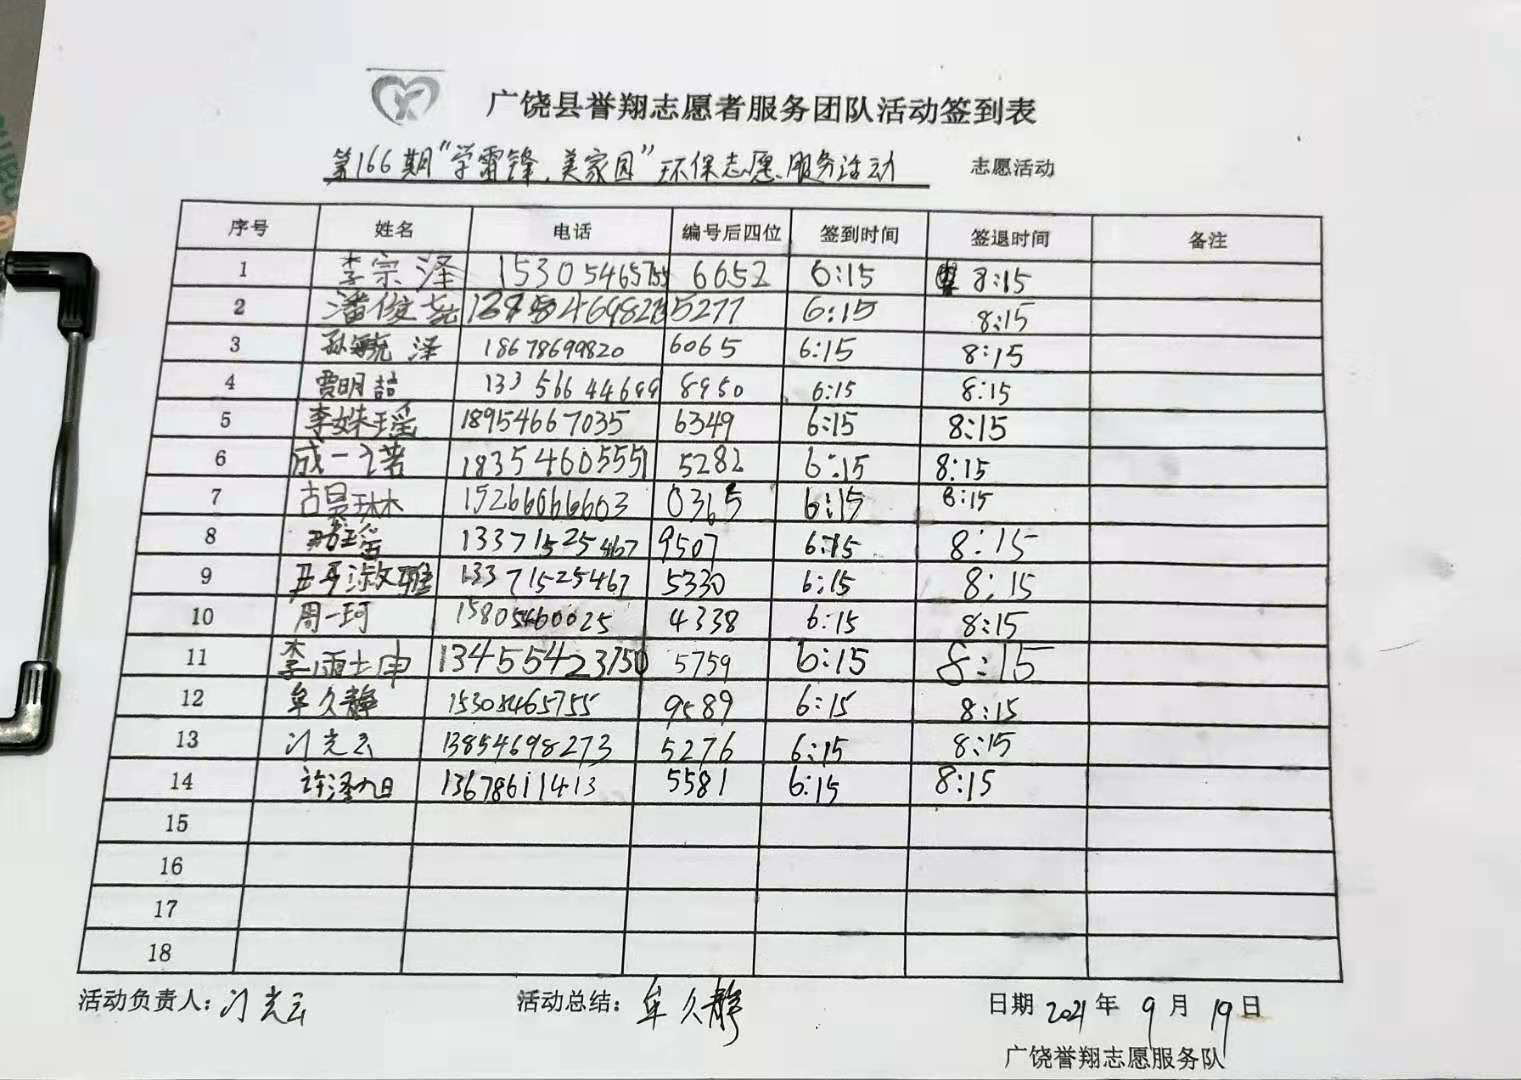 广饶县誉翔志愿者服务团队活动签到表
第166期"学雷锋、美家园"环保志愿服务活动 志愿活动
序号 姓名 电话 编号后四位 签到时间 签退时间 备注
1 李宗泽 15305465755 6652 6:15 8:15
2 潘俊 5277 6:15 8:15
3 孙毓泽 18678699820 6065 6:15 8:15
4 贾明喆 13356644699 8950 6:15 8:15
5 李姝瑶 18954667035 6349 6:15 8:15
6 成一诺 18354605551 5282 6:15 8:15
7 古昊琳 15266066603 0365 6:15 8:15
8 13371525467 9507 6:15 8:15
9 淑雅 13371525467 5330 6:15 8:15
10 周一珂 15805460025 4338 6:15 8:15
11 李雨 13455423750 5759 6:15 8:15
12 牟久静 15305465755 9589 6:15 8:15
13 光云 13854698273 5276 6:15 8:15
14 许泽旭 13678611413 5581 6:15 8:15
15
16
17
18
活动负责人: 光云 活动总结: 牟久静 日期 2021年9月19日
广饶誉翔志愿服务队